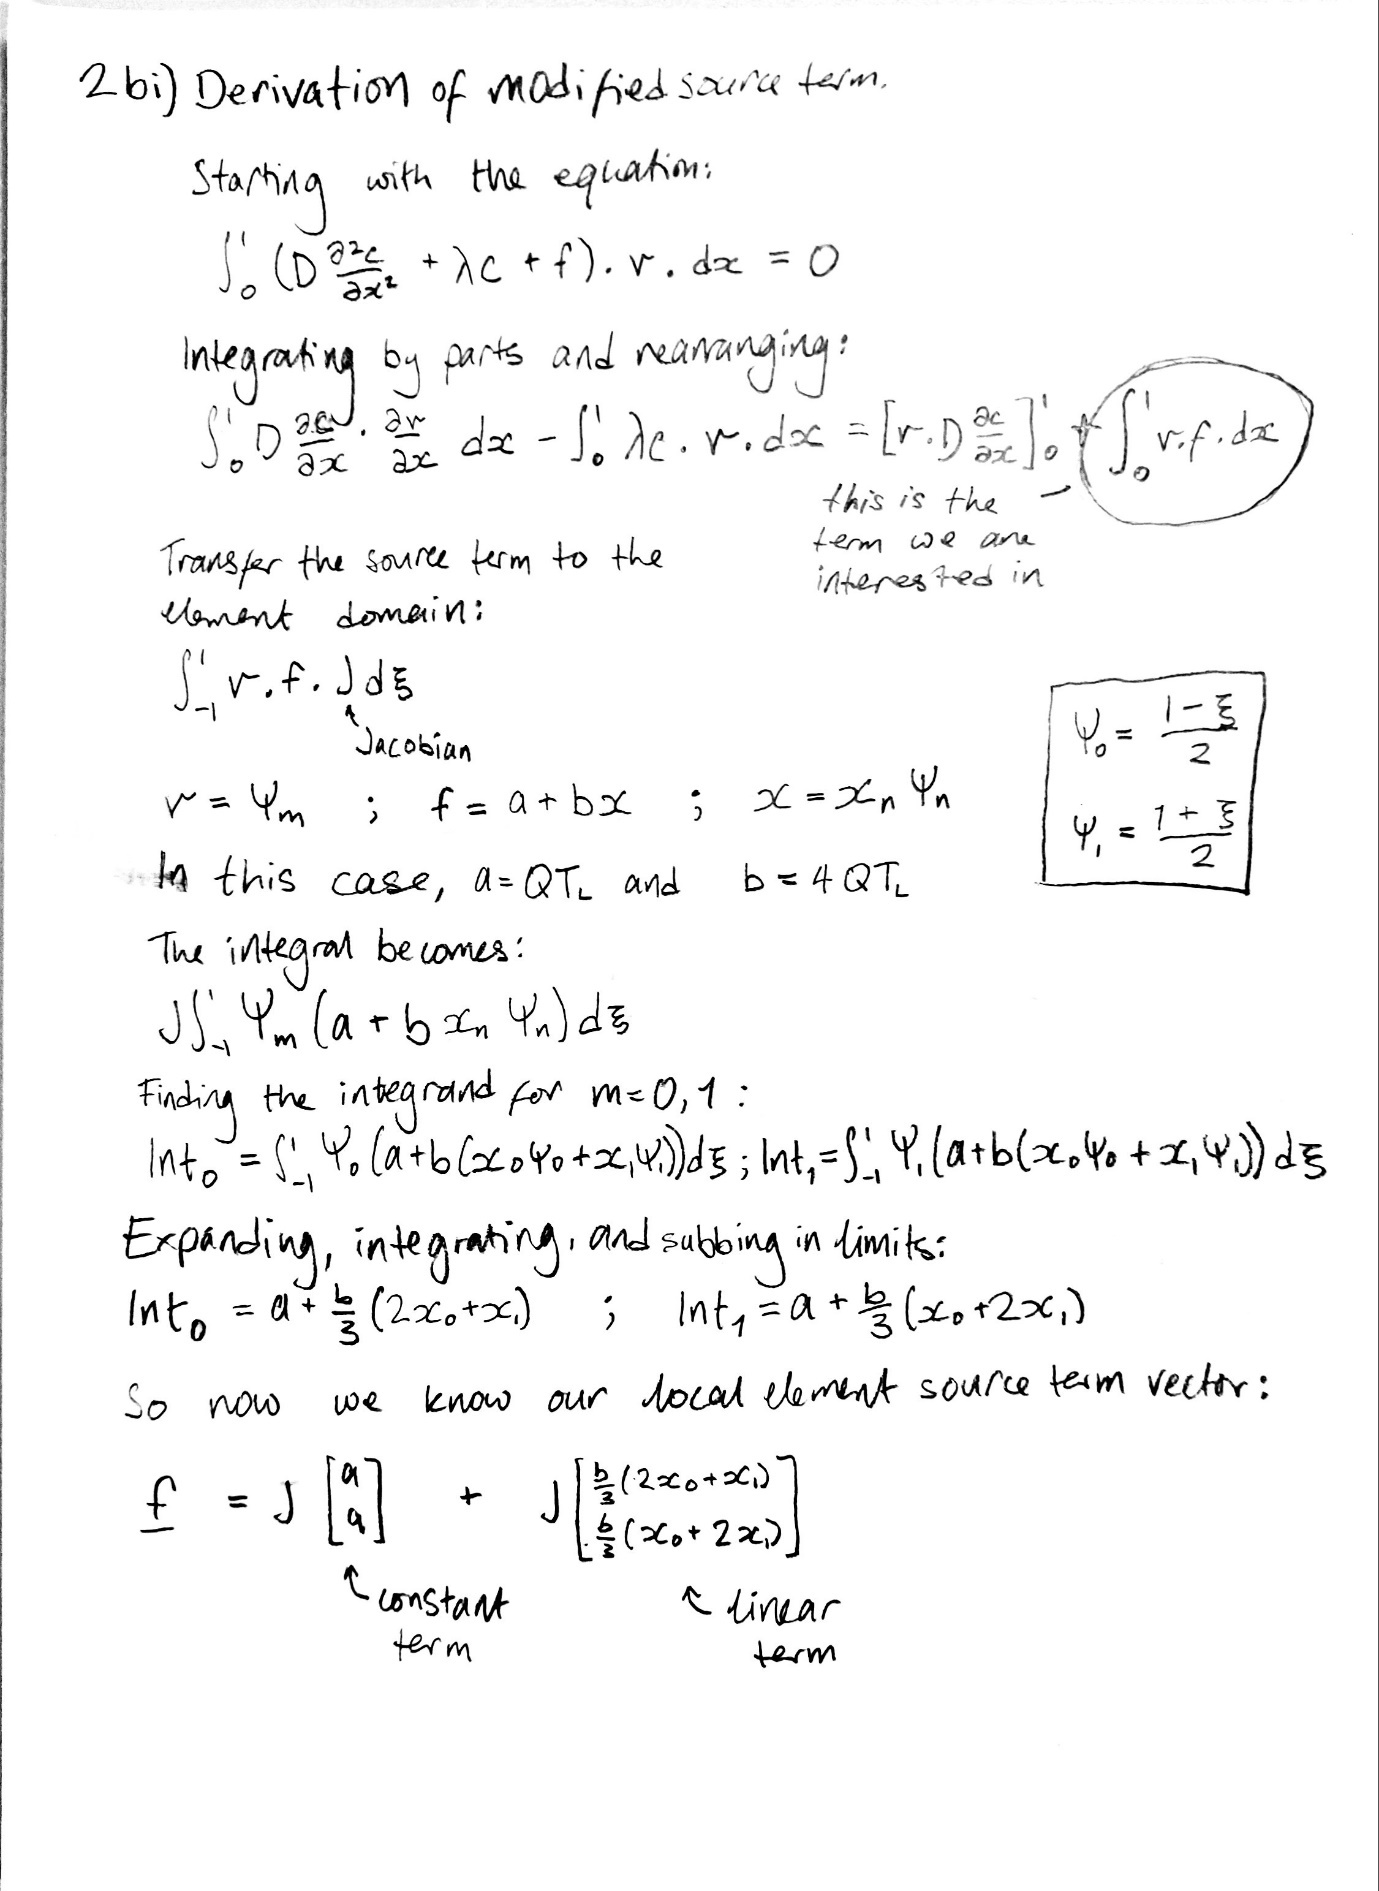 2bi) Derivation of modified source term.
Starting with the equation:
∫₀¹ (D ∂²c/∂x² + λc + f). v. dx = 0
Integrating by parts and rearranging:
∫₀¹ D ∂c/∂x . ∂v/∂x dx - ∫₀¹ λc. v. dx = [v.D ∂c/∂x]₀¹ + ∫₀¹ v.f.dx
this is the
term we are
interested in
Transfer the source term to the
element domain:
∫₋₁¹ v.f. J dξ
Jacobian
ψ₀ = (1-ξ)/2
ψ₁ = (1+ξ)/2
v = ψₘ ; f = a + bx ; x = xₙ ψₙ
In this case, a = QT_L and b = 4QT_L
The integral becomes:
J∫₋₁¹ ψₘ (a + b xₙ ψₙ) dξ
Finding the integrand for m=0,1 :
Int₀ = ∫₋₁¹ ψ₀(a+b(x₀ψ₀+x₁ψ₁))dξ ; Int₁ = ∫₋₁¹ ψ₁(a+b(x₀ψ₀+x₁ψ₁)) dξ
Expanding, integrating, and subbing in limits:
Int₀ = a + b/3 (2x₀+x₁) ; Int₁ = a + b/3 (x₀+2x₁)
So now we know our local element source term vector:
f = J [a a] + J [b/3(2x₀+x₁) b/3(x₀+2x₁)]
constant linear
term term